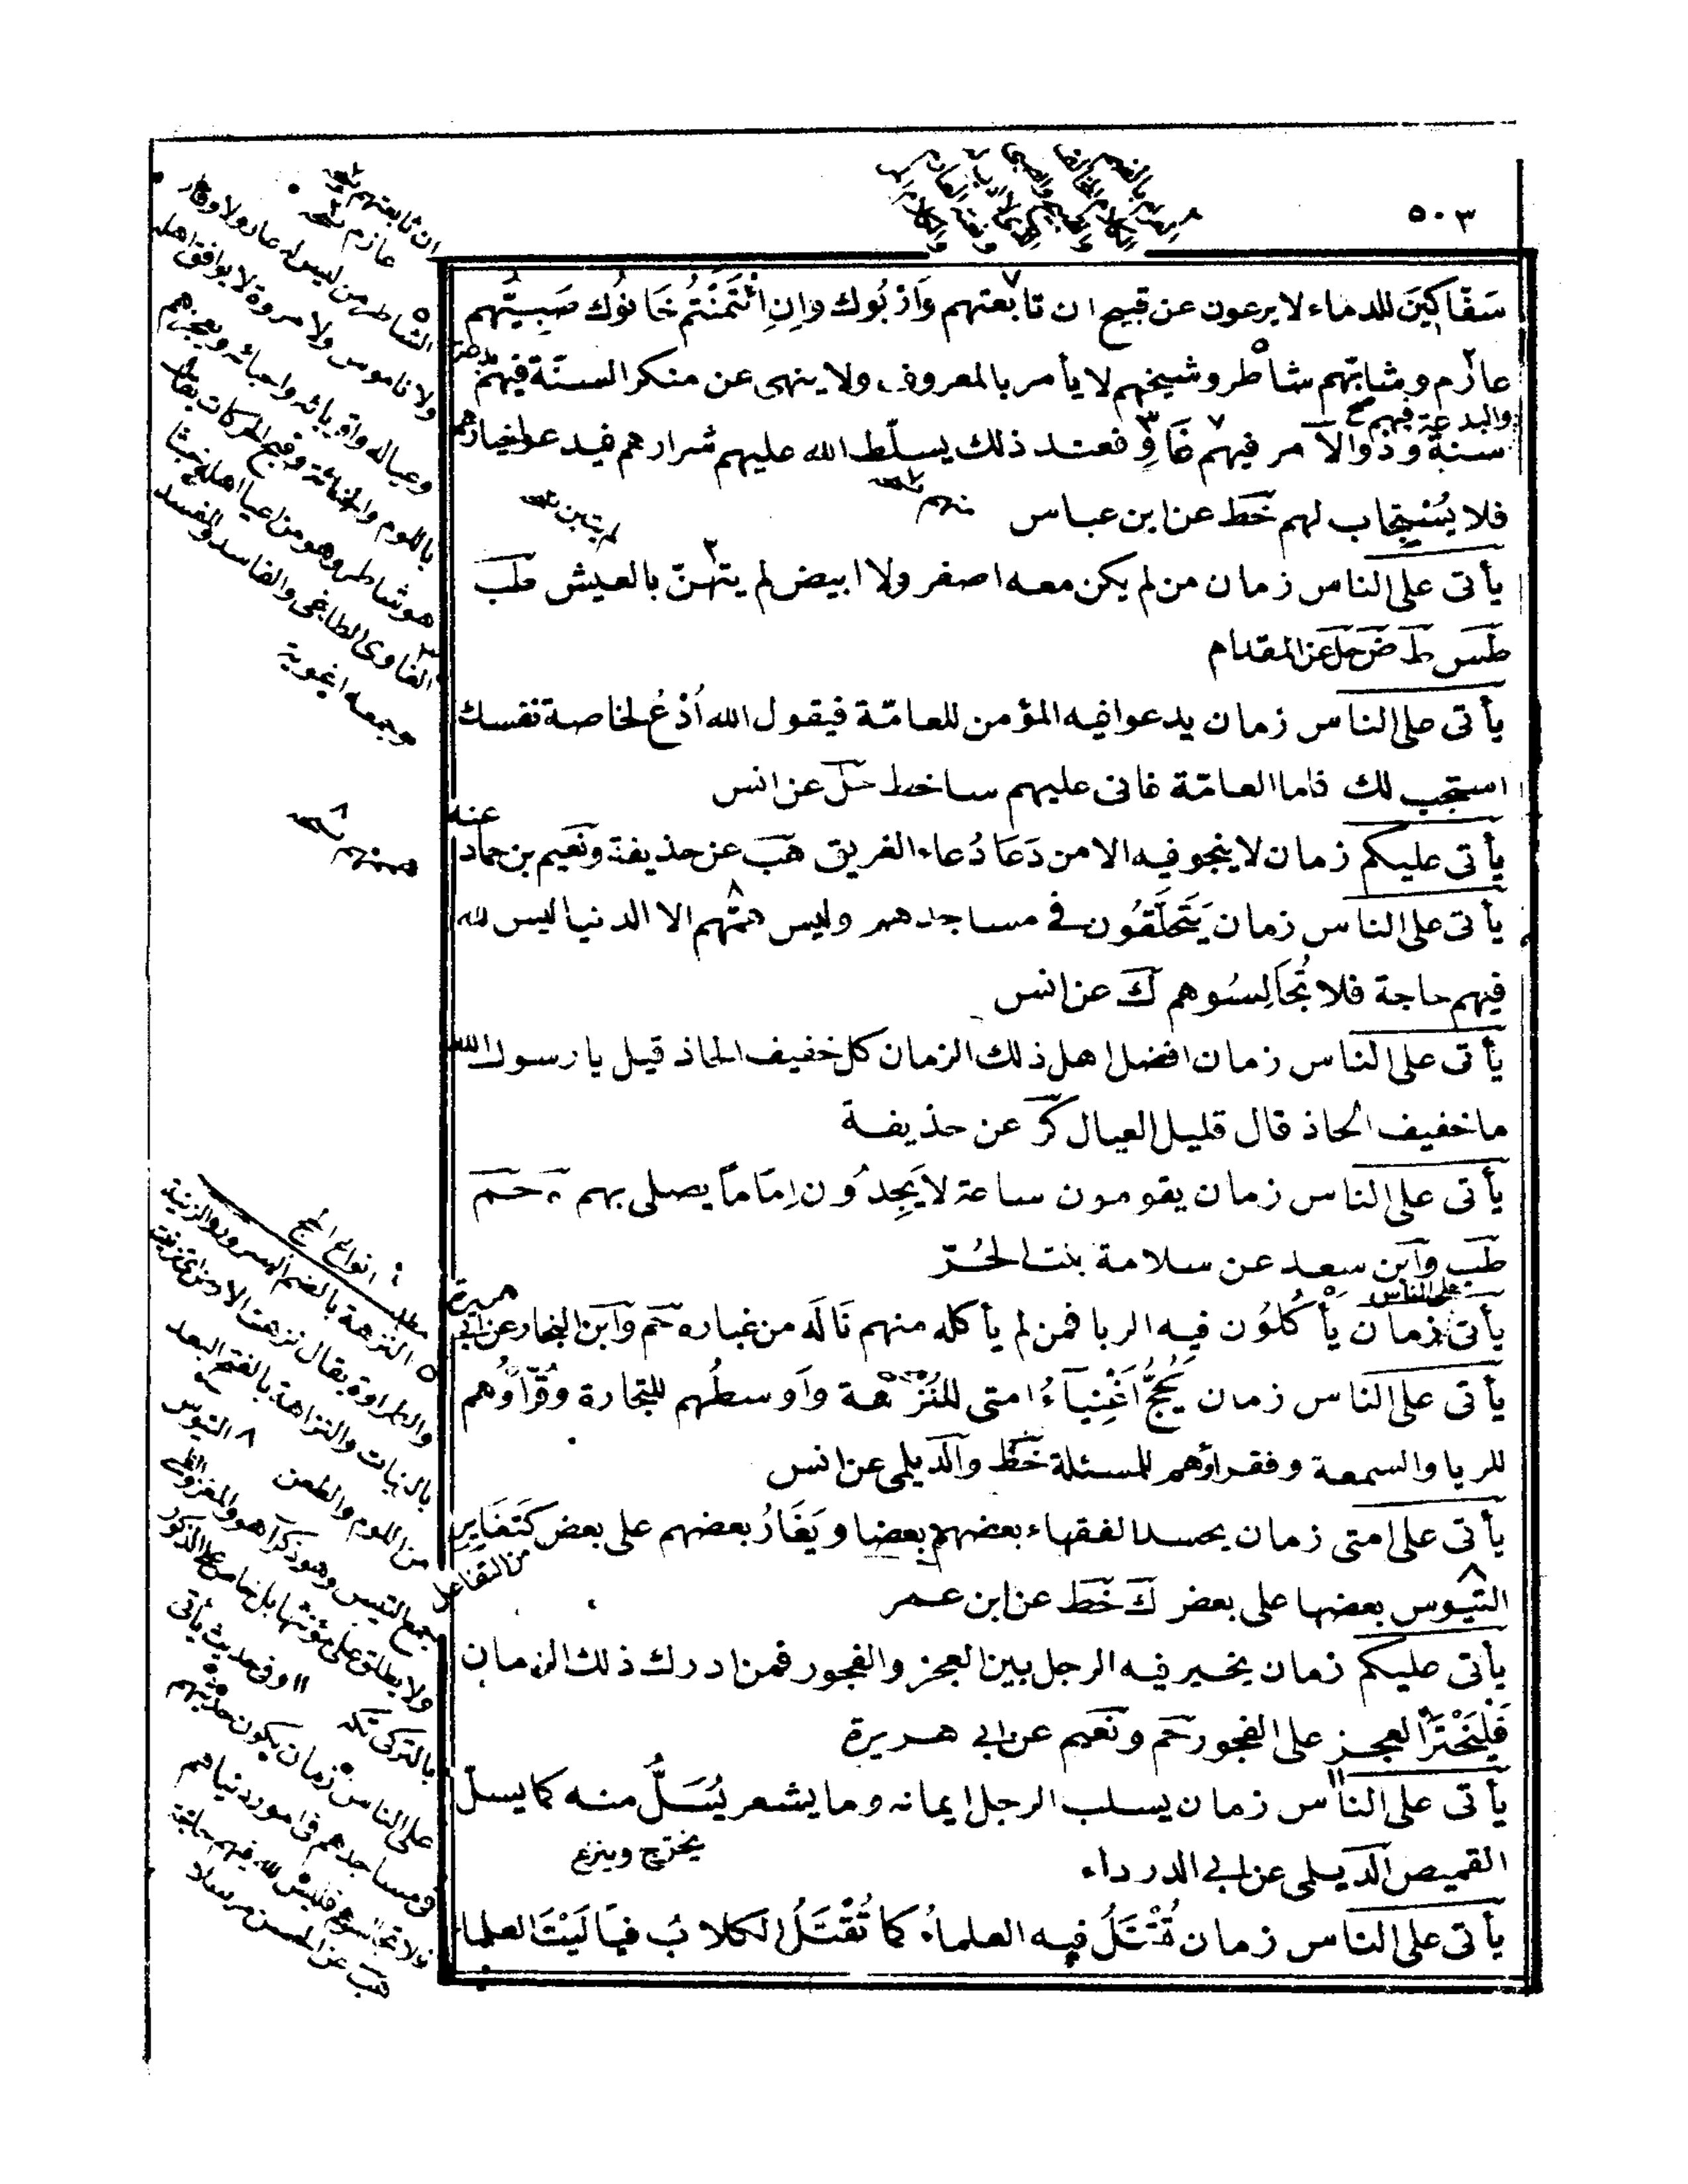 ٥٠٣
سَفّاكِينَ للدماء لا يرعون عن قبيح ان تابعتهم وَاَرْبُوك وان ائْتَمَنْتُم خَانوُك صَبِيُّهم
عازم وشابّهم شاطر وشيخهم لا يأمر بالمعروف ولا ينهى عن منكر السنّة فيهم
والبدعة فيهم صح
سنة وذوالآمر فيهم غَاوٍ فعند ذلك يسلّط الله عليهم شرارهم فيدعو اخيارهم
فلا يُسْتجَاب لهم خَط عن ابن عباس
منهم نسخه
لم يتبين نسخه
يأتى على الناس زمان من لم يكن معه اصفر ولا ابيض لم يتهنّ بالعيش طب
طس ط ض حل عن المقدام
يأتى على الناس زمان يدعوا فيه المؤمن للعامّة فيقول الله اُدْعُ لخاصة نفسك
استجب لك فاما العامّة فانى عليهم ساخط حل عن انس
عنه
يأتى عليكم زمان لا ينجو فيه الا من دَعَا دُعاء الغريق هَب عن حذيفة ونعَيم بن حماد
يأتى على الناس زمان يَتَحلّقُون فى مساجدهم وليس همّتهم الا الدنيا ليس لله
فيهم حاجة فلا تُجَالِسُوهم ك عن انس
يأتى على الناس زمان افضل اهل ذلك الزمان كل خفيف الحاذ قيل يا رسول الله
ما خفيف الحاذ قال قليل العيال كر عن حذيفة
يأتى على الناس زمان يقومون ساعة لا يَجِدُون اِمَاماً يصلى بهم ه حم
طَب وابن سعد عن سلامة بنت الحُرّ
على الناس
هريرة
يأتى زمان يأْكُلوُن فيه الربا فمن لم يأكله منهم نَالَه من غباره حم وابن النجار عن ابى
يأتى على الناس زمان يَحُجُّ اَغْنِيآءُ امتى للنُزْهة وَاَوسطُهم للتجارة وقُرّاؤُهم
للريا والسمعة وفقراؤهم للمسئلة خط والديلمى عن انس
يأتى على امتى زمان يحسد الفقهاء بعضهم بعضا ويَغَارُ بعضهم على بعض كَتَغَايرِ
من التفاعل
التيوس بعضها على بعض ك خط عن ابن عمر
يأتى عليكم زمان يخير فيه الرجل بين العجز والفجور فمن ادرك ذلك الزمان
فليَخْتَر العجز على الفجور حم ونعيم عن ابى هريرة
يأتى على الناس زمان يسلب الرجل ايمانه وما يشعر يُسَلُّ منه كما يسلّ
القميص الديلمى عن ابى الدرداء
يخرج وينزع
يأتى على الناس زمان تُقْتَلُ فيه العلماءُ كما تُقْتَلُ الكلابُ فيَا لَيْتَ العلماء
ان تابعتهم نسخه
عارم نسخه
الشاطر من ليس له عار ولا وقار
ولا ناموس ولا مروة لا يوافق اهله
وعياله واقربائه واحبائه ويعجزهم
هو شاطر وهو من اعيا اهله خبثا
الغاوى الطاغى والفاسد والمفسد
وجمعه اغوية
همتهم نسخه
مطلب انواع الحج
النزهة بالضم السرور والزينة
والطراوة يقال نزهت الارض اى تزينت
بالنبات والنزاهة بالفتح البعد
من اللوم والطعن ٨ التيوس
ولا يطلق على مؤنثها بل خاص على الذكور
بالتركى تكه ١١ وفى حديث يأتى
على الناس زمان يكون حديثهم
فى مساجدهم فى امور دنياهم
فلا تجالسوهم فليس لله فيهم حاجة
هب عن الحسن مرسلا